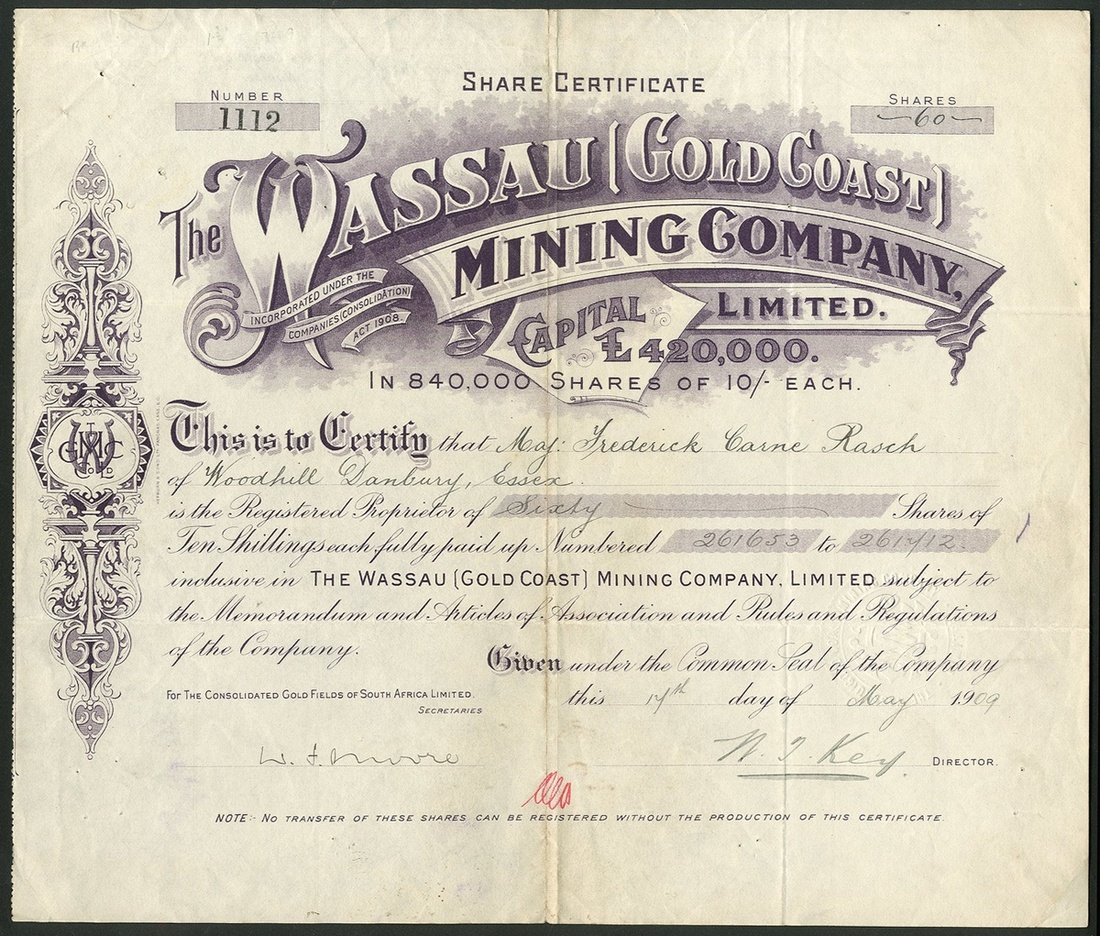 SHARE CERTIFICATE
NUMBER
1112
SHARES
60
The WASSAU (GOLD COAST)
MINING COMPANY,
LIMITED.
INCORPORATED UNDER THE
COMPANIES (CONSOLIDATION)
ACT 1908.
CAPITAL
£420,000.
IN 840,000 SHARES OF 10/- EACH.
This is to Certify that Maj: Frederick Carne Rasch
of Woodhill Danbury, Essex.
is the Registered Proprietor of Sixty Shares of
Ten Shillings each fully paid up Numbered 261653 to 261712.
inclusive in THE WASSAU (GOLD COAST) MINING COMPANY, LIMITED subject to
the Memorandum and Articles of Association and Rules and Regulations
of the Company.
Given under the Common Seal of the Company
this 17th day of May 1909
FOR THE CONSOLIDATED GOLD FIELDS OF SOUTH AFRICA LIMITED.
SECRETARIES
W. F. Moore
N. T. Key. DIRECTOR.
NOTE:- NO TRANSFER OF THESE SHARES CAN BE REGISTERED WITHOUT THE PRODUCTION OF THIS CERTIFICATE.